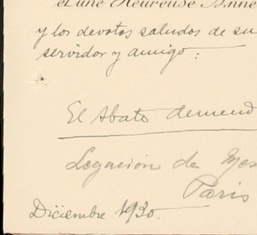 et une Heureuse Anné
y los devotos saludos de su
servidor y amigo:
El Abate
Legación de
Paris
Diciembre 1930.